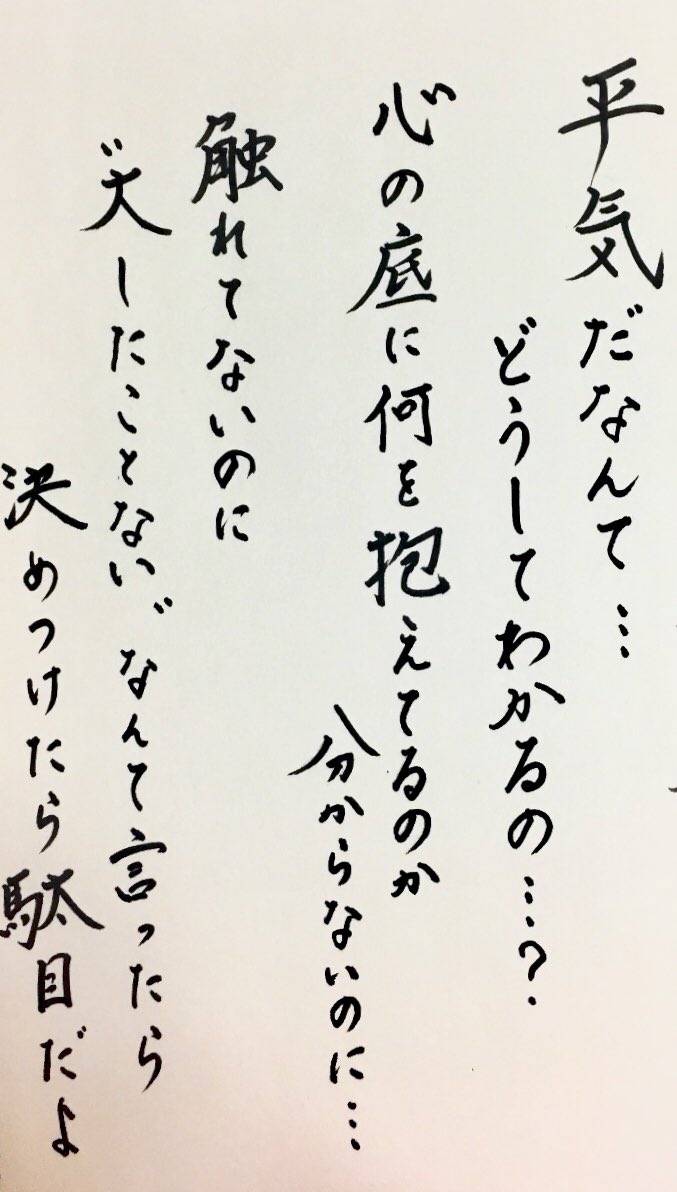 平気だなんて…
どうしてわかるの…?
心の底に何を抱えてるのか
分からないのに…
触れてないのに
"大したことない"なんて言ったら
決めつけたら駄目だよ